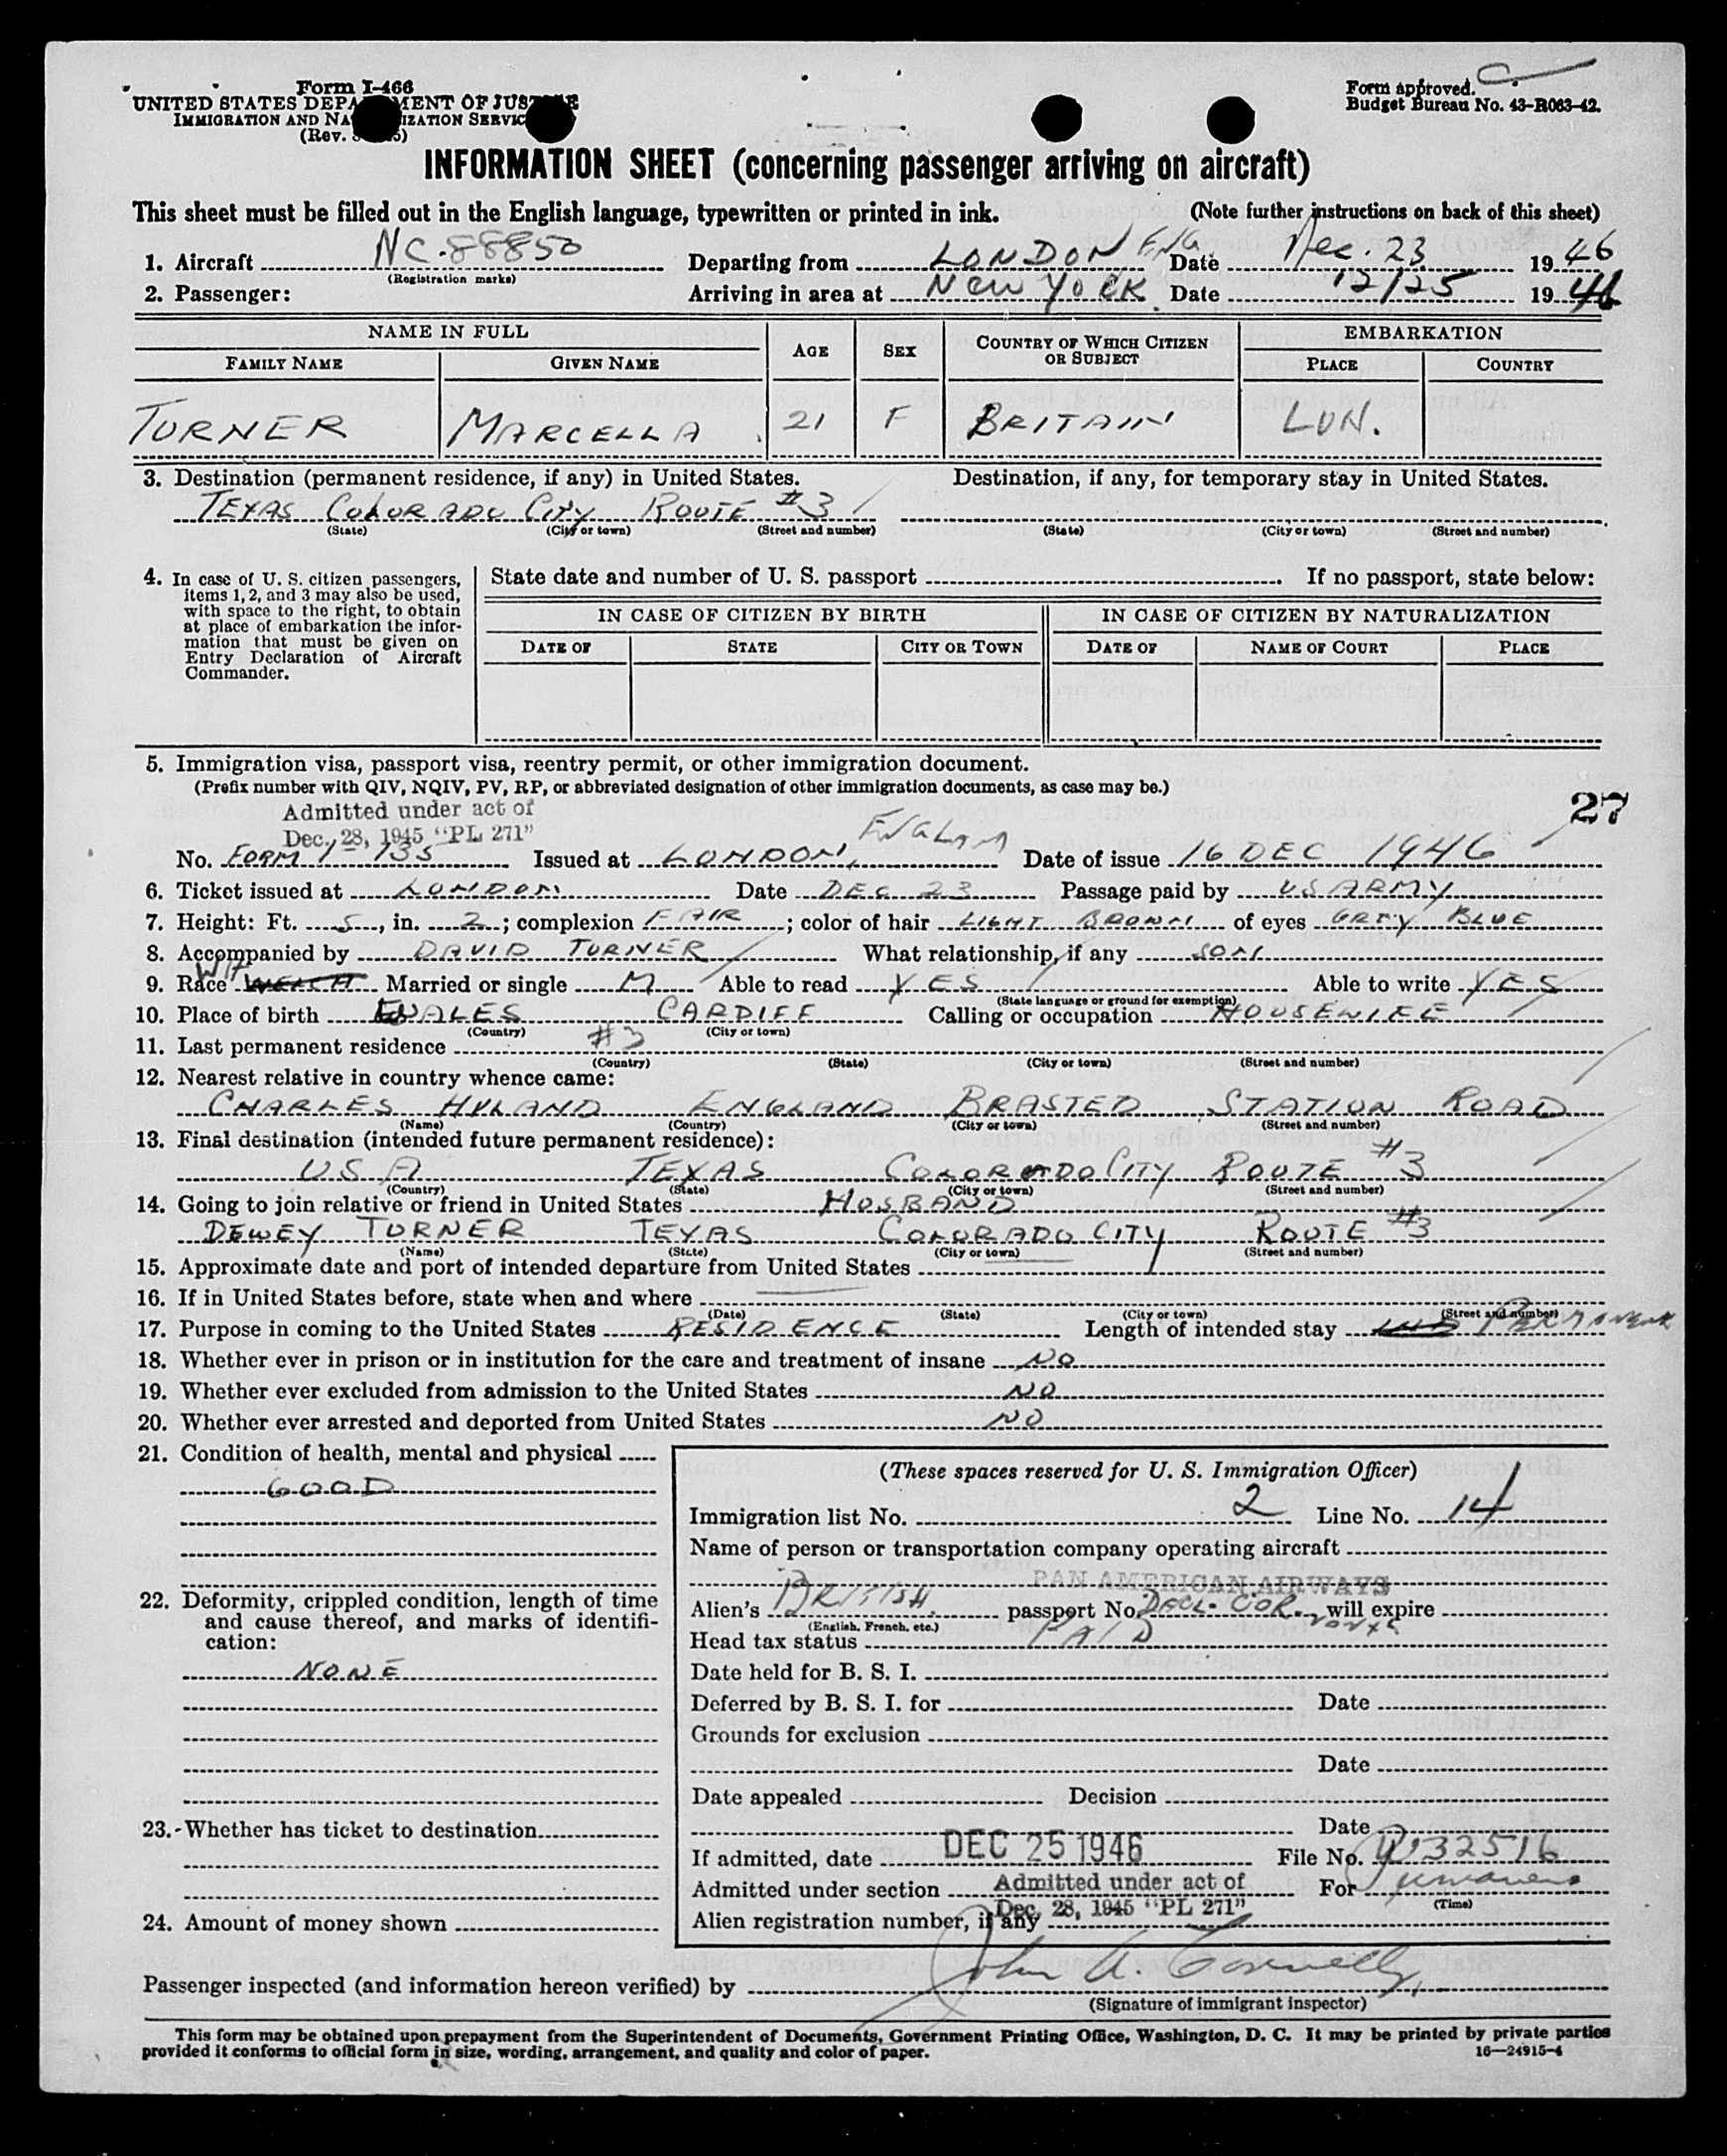 Form I-466
UNITED STATES DEPARTMENT OF JUSTICE
IMMIGRATION AND NATURALIZATION SERVICE
(Rev.
Form approved.
Budget Bureau No. 43-R063-42.
INFORMATION SHEET (concerning passenger arriving on aircraft)
This sheet must be filled out in the English language, typewritten or printed in ink. (Note further instructions on back of this sheet)
1. Aircraft NC-88850 Departing from LONDON ENG. Date Dec. 23 1946
(Registration marks)
2. Passenger: Arriving in area at NEW YORK Date 12/25 1946
NAME IN FULL AGE SEX COUNTRY OF WHICH CITIZEN OR SUBJECT EMBARKATION
FAMILY NAME GIVEN NAME PLACE COUNTRY
TURNER MARCELLA 21 F BRITAIN LON.
3. Destination (permanent residence, if any) in United States. Destination, if any, for temporary stay in United States.
TEXAS COLORADO CITY ROUTE #3
(State) (City or town) (Street and number) (State) (City or town) (Street and number)
4. In case of U. S. citizen passengers, items 1, 2, and 3 may also be used, with space to the right, to obtain at place of embarkation the information that must be given on Entry Declaration of Aircraft Commander.
State date and number of U. S. passport If no passport, state below:
IN CASE OF CITIZEN BY BIRTH IN CASE OF CITIZEN BY NATURALIZATION
DATE OF STATE CITY OR TOWN DATE OF NAME OF COURT PLACE
5. Immigration visa, passport visa, reentry permit, or other immigration document.
(Prefix number with QIV, NQIV, PV, RP, or abbreviated designation of other immigration documents, as case may be.)
27
Admitted under act of
Dec. 28, 1945 "PL 271"
No. FORM I 135 Issued at LONDON, ENGLAND Date of issue 16 DEC 1946
6. Ticket issued at LONDON Date DEC 23 Passage paid by US ARMY
7. Height: Ft. 5, in. 2; complexion FAIR; color of hair LIGHT BROWN of eyes GREY BLUE
8. Accompanied by DAVID TURNER What relationship, if any SON
9. Race WELCH WH Married or single M Able to read YES Able to write YES
(State language or ground for exemption)
10. Place of birth WALES CARDIFF Calling or occupation HOUSEWIFE
(Country) (City or town)
11. Last permanent residence #3
(Country) (State) (City or town) (Street and number)
12. Nearest relative in country whence came:
CHARLES HYLAND ENGLAND BRASTED STATION ROAD
(Name) (Country) (City or town) (Street and number)
13. Final destination (intended future permanent residence):
USA TEXAS COLORADO CITY ROUTE #3
(Country) (State) (City or town) (Street and number)
14. Going to join relative or friend in United States HUSBAND
DEWEY TURNER TEXAS COLORADO CITY ROUTE #3
(Name) (State) (City or town) (Street and number)
15. Approximate date and port of intended departure from United States
16. If in United States before, state when and where
(Date) (State) (City or town) (Street and number)
17. Purpose in coming to the United States RESIDENCE Length of intended stay PERMANENT
18. Whether ever in prison or in institution for the care and treatment of insane NO
19. Whether ever excluded from admission to the United States NO
20. Whether ever arrested and deported from United States NO
21. Condition of health, mental and physical
GOOD
22. Deformity, crippled condition, length of time and cause thereof, and marks of identification:
NONE
23. Whether has ticket to destination
24. Amount of money shown
(These spaces reserved for U. S. Immigration Officer)
Immigration list No. 2 Line No. 14
Name of person or transportation company operating aircraft
PAN AMERICAN AIRWAYS
Alien's BRITISH passport No. will expire
(English, French, etc.)
Head tax status PAID
Date held for B. S. I.
Deferred by B. S. I. for Date
Grounds for exclusion
Date
Date appealed Decision
Date
If admitted, date DEC 25 1946 File No.
Admitted under section Admitted under act of For
Dec. 28, 1945 "PL 271" (Time)
Alien registration number, if any
Passenger inspected (and information hereon verified) by John A.
(Signature of immigrant inspector)
This form may be obtained upon prepayment from the Superintendent of Documents, Government Printing Office, Washington, D. C. It may be printed by private parties
provided it conforms to official form in size, wording, arrangement, and quality and color of paper. 16—24915-4